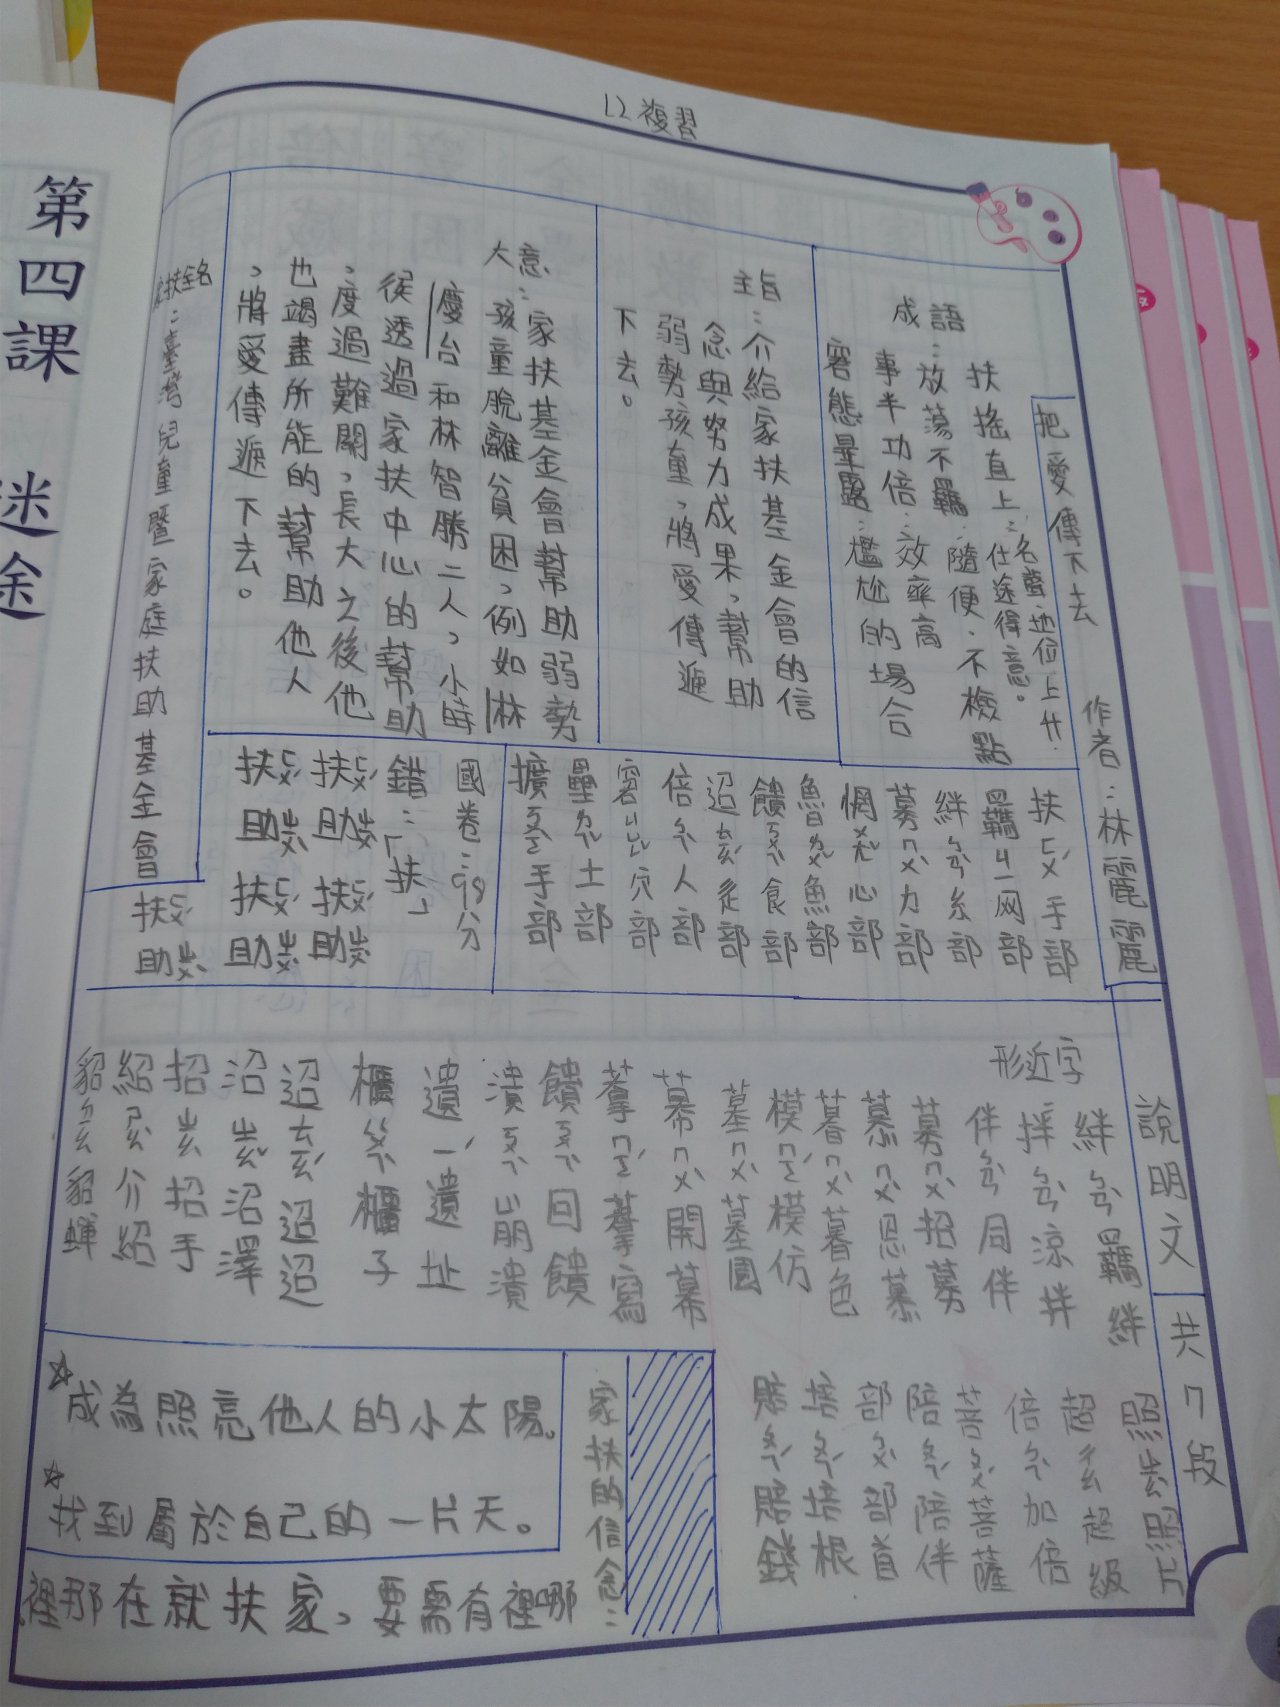 L2複習
把愛傳下去
作者：林麗麗
說明文
共7段
成語：
扶搖直上：名聲、地位上升.仕途得意。
放蕩不羈：隨便、不檢點
事半功倍：效率高
窘態畢露：尷尬的場合
主旨：介給家扶基金會的信
念與努力成果，幫助
弱勢孩童，將愛傳遞
下去。
大意：家扶基金會幫助弱勢
孩童脫離貧困，例如林
慶台和林智勝二人，小時
候透過家扶中心的幫助
，度過難關，長大之後他
也竭盡所能的幫助他人
，將愛傳遞下去。
家扶全名：臺灣兒童暨家庭扶助基金會
扶ㄈㄨˊ手部
羈ㄐㄧ网部
絆ㄅㄢˋ糸部
募ㄇㄨˋ力部
惘ㄨㄤˇ心部
魯ㄌㄨˇ魚部
饋ㄎㄨㄟˋ食部
迢ㄊㄧㄠˊ辵部
倍ㄅㄟˋ人部
窘ㄐㄩㄥˇ穴部
壘ㄌㄟˇ土部
擴ㄎㄨㄛˋ手部
國卷：98分
錯：「扶」
扶ㄈㄨˊ助ㄓㄨˋ扶ㄈㄨˊ助ㄓㄨˋ
扶ㄈㄨˊ助ㄓㄨˋ扶ㄈㄨˊ助ㄓㄨˋ
扶ㄈㄨˊ助ㄓㄨˋ
形近字
絆ㄅㄢˋ羈絆
拌ㄅㄢˋ涼拌
伴ㄅㄢˋ同伴
募ㄇㄨˋ招募
慕ㄇㄨˋ思慕
暮ㄇㄨˋ暮色
模ㄇㄛˊ模仿
墓ㄇㄨˋ墓園
幕ㄇㄨˋ開幕
摹ㄇㄛˊ摹寫
饋ㄎㄨㄟˋ回饋
潰ㄎㄨㄟˋ崩潰
遺ㄧˊ遺址
櫃ㄍㄨㄟˋ櫃子
迢ㄊㄧㄠˊ迢迢
沼ㄓㄠˇ沼澤
招ㄓㄠ招手
紹ㄕㄠˋ介紹
貂ㄉㄧㄠ貂蟬
照ㄓㄠˋ照片
超ㄔㄠ超級
倍ㄅㄟˋ加倍
菩ㄆㄨˊ菩薩
陪ㄆㄟˊ陪伴
部ㄅㄨˋ部首
培ㄆㄟˊ培根
賠ㄆㄟˊ賠錢
家扶的信念：
☆成為照亮他人的小太陽。
☆找到屬於自己的一片天。
哪裡有需要，家扶就在那裡.
第四課
迷途